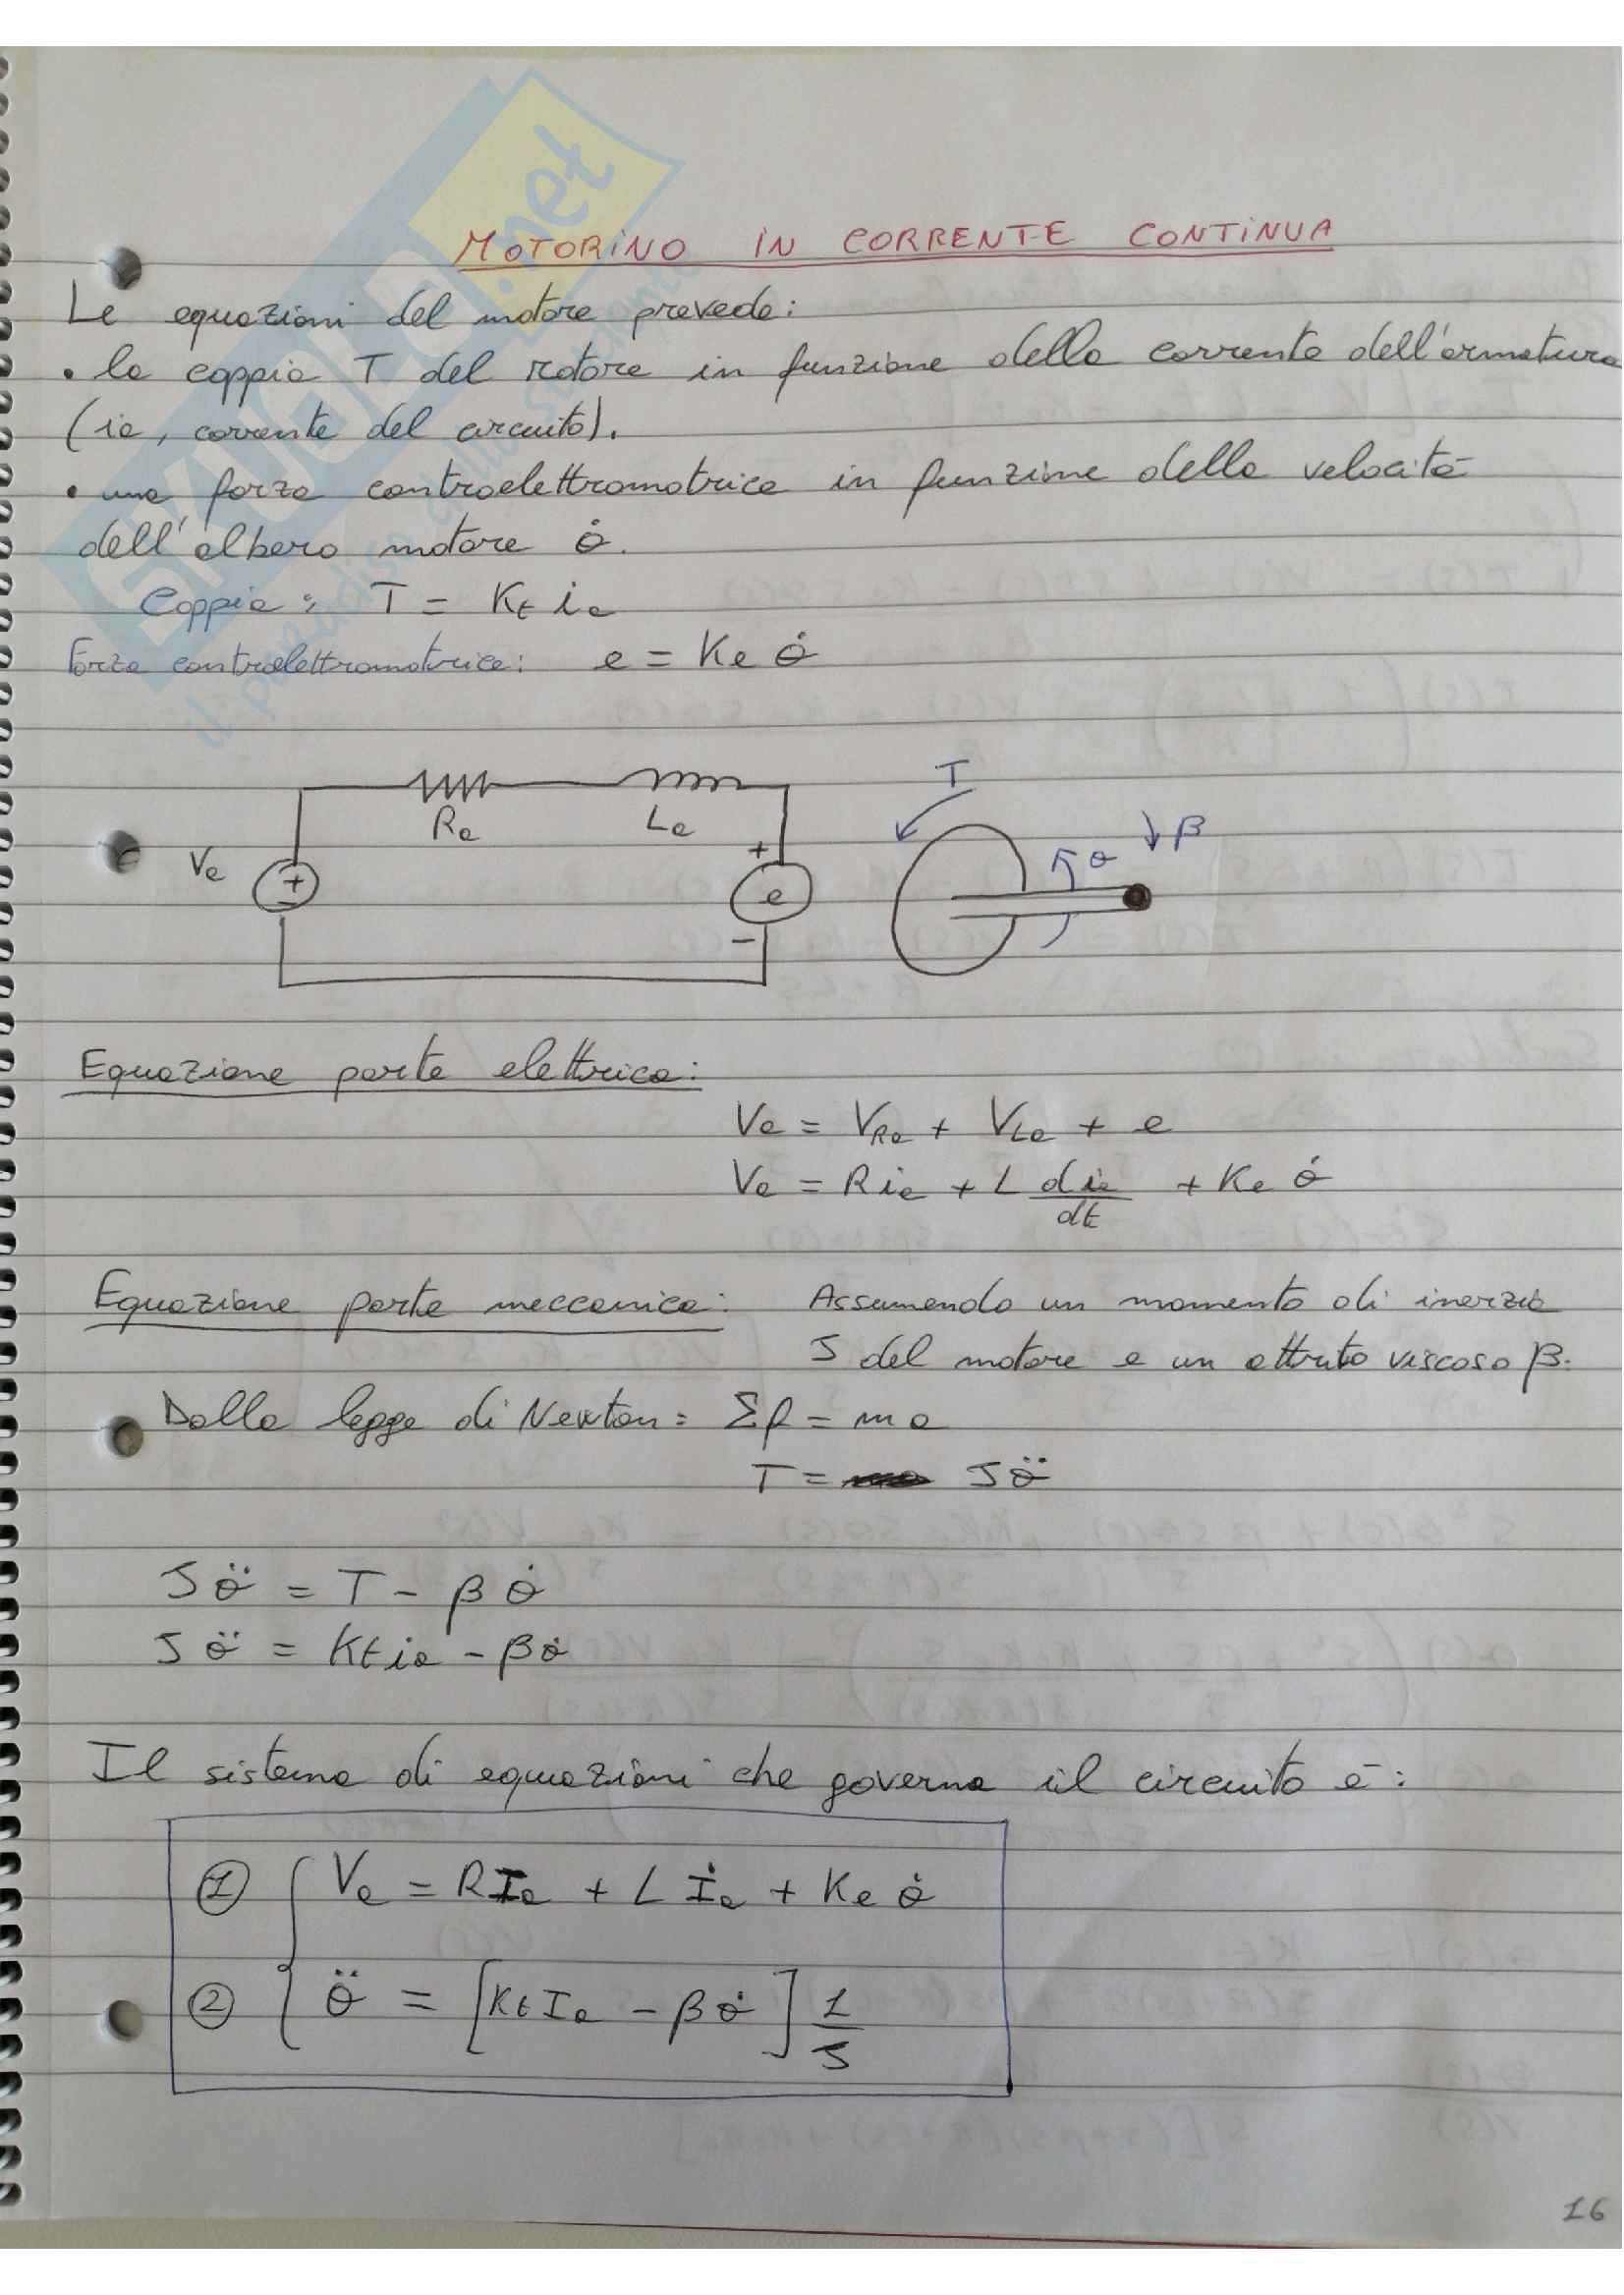 MOTORINO IN CORRENTE CONTINUA
Le equazioni del motore prevede:
• la coppia T del rotore in funzione della corrente dell'armatura
(ia, corrente del circuito).
• una forza controelettromotrice in funzione della velocità
dell'albero motore θ̇.
Coppia: T = Kt ia
Forza controelettromotrice: e = Ke θ̇
T
Ra La β
Va + θ
+ - e
-
Equazione parte elettrica:
Va = VRa + VLa + e
Va = R ia + L dia/dt + Ke θ̇
Equazione parte meccanica: Assumendo un momento di inerzia
J del motore e un attrito viscoso β.
Dalla legge di Newton: Σf = ma
T = Jθ̈
Jθ̈ = T - βθ̇
Jθ̈ = Kt ia - βθ̇
Il sistema di equazioni che governa il circuito è:
① { Va = RIa + L İa + Ke θ̇
② θ̈ = [Kt Ia - βθ̇] 1/J
16
.net